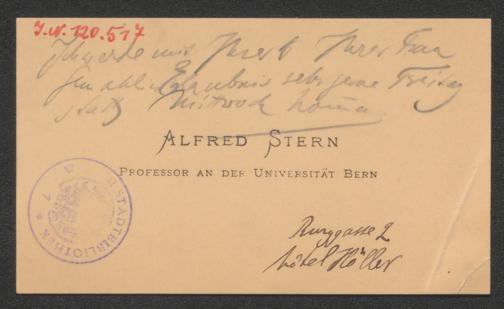 J.N. 120.517
Ich werde mit Ihrer Frau
Gemahlin Erlaubnis sehr gerne Freitag
statt Mittwoch
ALFRED STERN
PROFESSOR AN DER UNIVERSITÄT BERN
STADTBIBLIOTHEK
Burggasse 2
Hôtel Höller